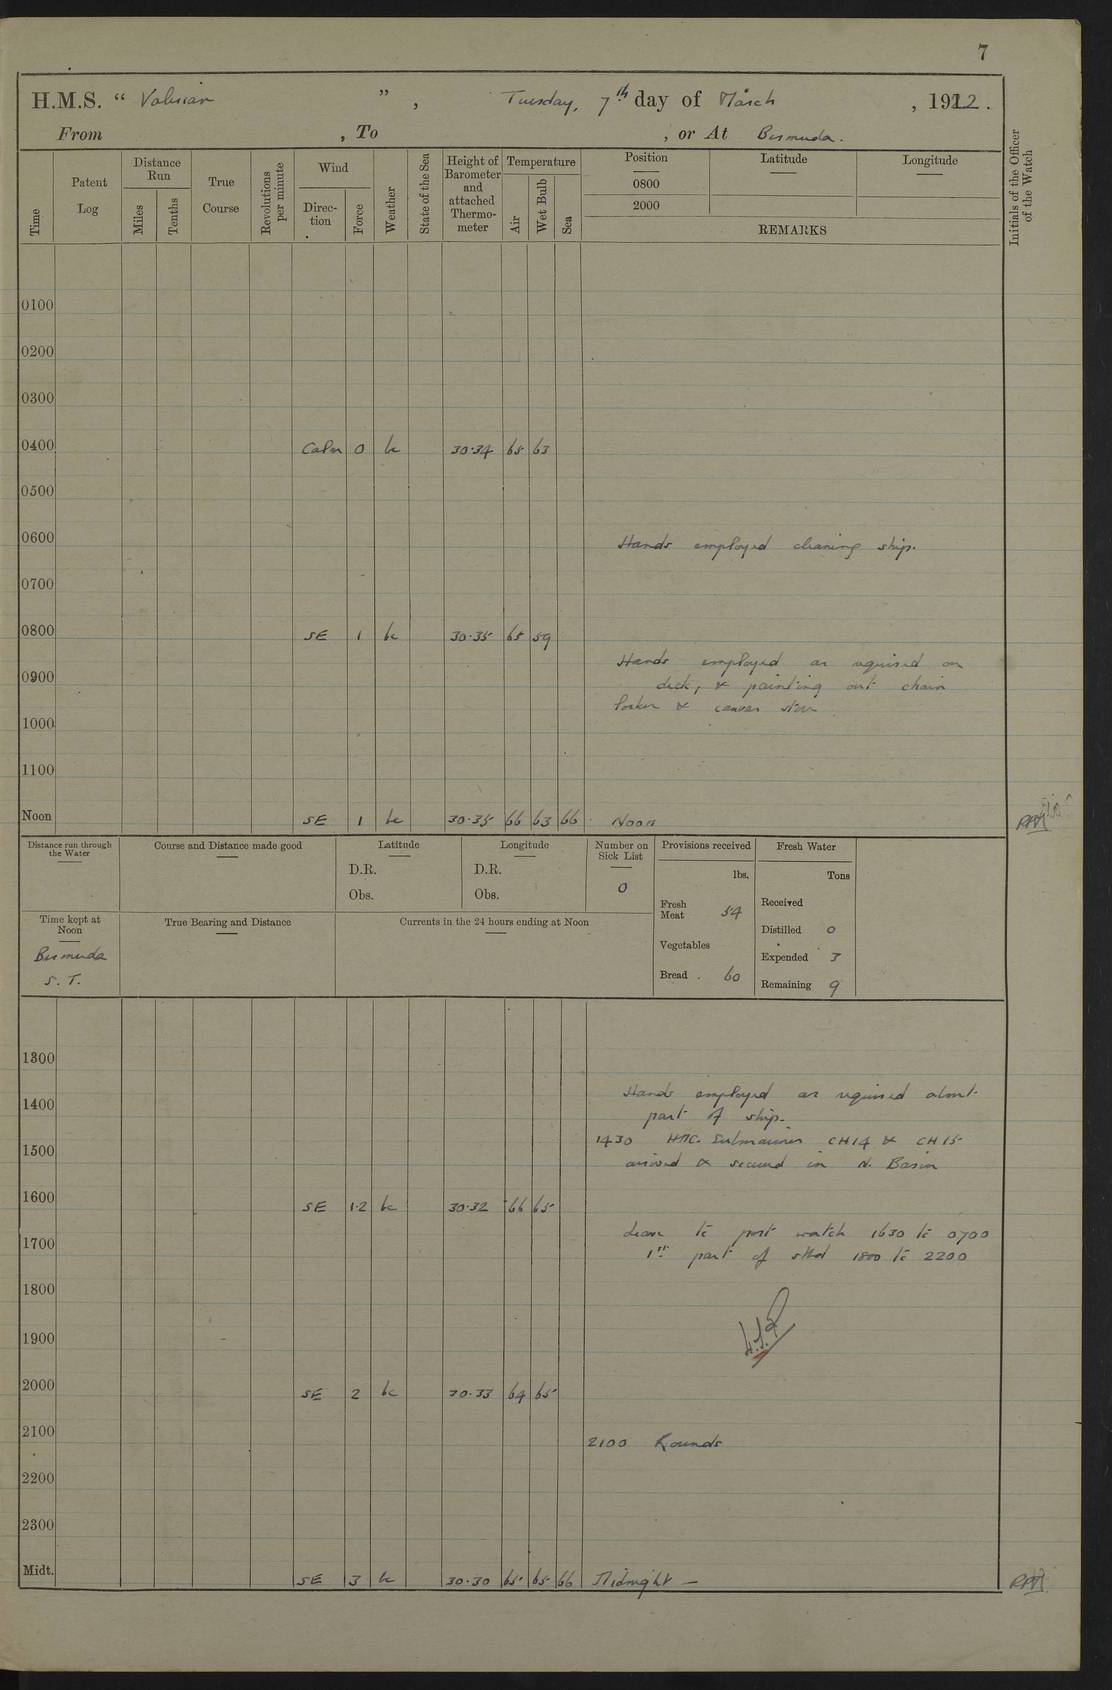 7
H.M.S. “ Valerian ” , Tuesday, 7th day of March , 1922 .
From , To , or At Bermuda.
Time
Patent Log
Distance Run
Miles
Tenths
True Course
Revolutions per minute
Wind
Direc-tion
Force
Weather
State of the Sea
Height of Barometer and attached Thermo-meter
Temperature
Air
Wet Bulb
Sea
Position
0800
2000
Latitude
Longitude
REMARKS
Initials of the Officer of the Watch
0100
0200
0300
0400 Calm 0 bc 30.34 65 63
0500
0600 Hands employed cleaning ship.
0700
0800 SE 1 bc 30.35 65 59
Hands employed as required on
0900 deck, & painting out chain
locker & canvas store
1000
1100
Noon SE 1 bc 30.35 66 63 66 Noon
Distance run through the Water
Course and Distance made good
Latitude
D.R.
Obs.
Longitude
D.R.
Obs.
Number on Sick List
0
Provisions received
lbs.
Fresh Meat 54
Vegetables
Bread . 60
Fresh Water
Tons
Received
Distilled 0
Expended 3
Remaining 9
Time kept at Noon
Bermuda
S.T.
True Bearing and Distance
Currents in the 24 hours ending at Noon
1300
1400 Hands employed as required abmt.
part of ship.
1430 HMC. Submarines CH14 & CH15
1500 arrived & secured in N. Basin
1600 SE 1.2 bc 30.32 66 65
Leave to port watch 1630 to 0700
1700 1st part of stbd 1800 to 2200
1800
1900
2000 SE 2 bc 30.33 64 65
2100 2100 Rounds
2200
2300
Midt. SE 3 bc 30.30 65 65 66 Midnight —